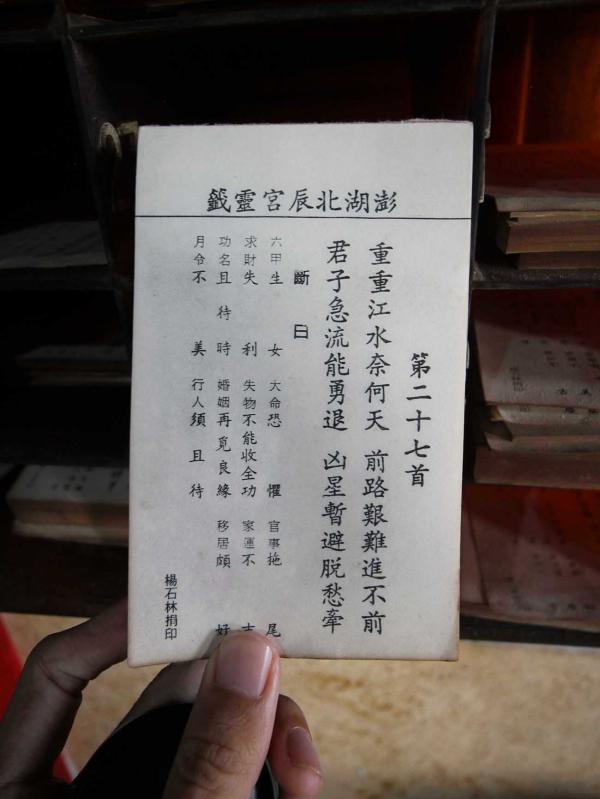 澎湖北辰宮靈籤
第二十七首
重重江水奈何天 前路艱難進不前
君子急流能勇退 凶星暫避脱愁牽
斷曰
六甲生女 大命恐懼 官事拖尾
求財失利 失物不能收全功 家運不吉
功名且待時 婚姻再覓良緣 移居頗好
月令不美 行人須且待
楊石林捐印